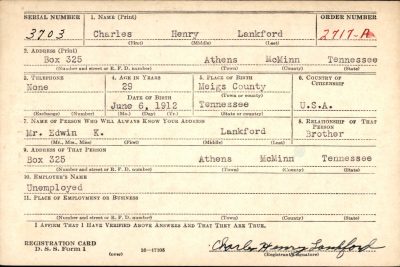 SERIAL NUMBER 1. NAME (Print) ORDER NUMBER
3703 Charles Henry Lankford 2717-A
(First) (Middle) (Last)
2. ADDRESS (Print)
Box 325 Athens McMinn Tennessee
(Number and street or R. F. D. number) (Town) (County) (State)
3. TELEPHONE 4. AGE IN YEARS 5. PLACE OF BIRTH 6. COUNTRY OF CITIZENSHIP
None 29 Meigs County
DATE OF BIRTH (Town or county)
June 6, 1912 Tennessee U.S.A.
(Exchange) (Number) (Mo.) (Day) (Yr.) (State or country)
7. NAME OF PERSON WHO WILL ALWAYS KNOW YOUR ADDRESS 8. RELATIONSHIP OF THAT PERSON
Mr. Edwin K. Lankford Brother
(Mr., Mrs., Miss) (First) (Middle) (Last)
9. ADDRESS OF THAT PERSON
Box 325 Athens McMinn Tennessee
(Number and street or R. F. D. number) (Town) (County) (State)
10. EMPLOYER'S NAME
Unemployed
11. PLACE OF EMPLOYMENT OR BUSINESS
(Number and street or R. F. D. number) (Town) (County) (State)
I AFFIRM THAT I HAVE VERIFIED ABOVE ANSWERS AND THAT THEY ARE TRUE.
REGISTRATION CARD
D. S. S. Form 1 (over) 16-17105 Charles Henry Lankford
(Registrant's signature)